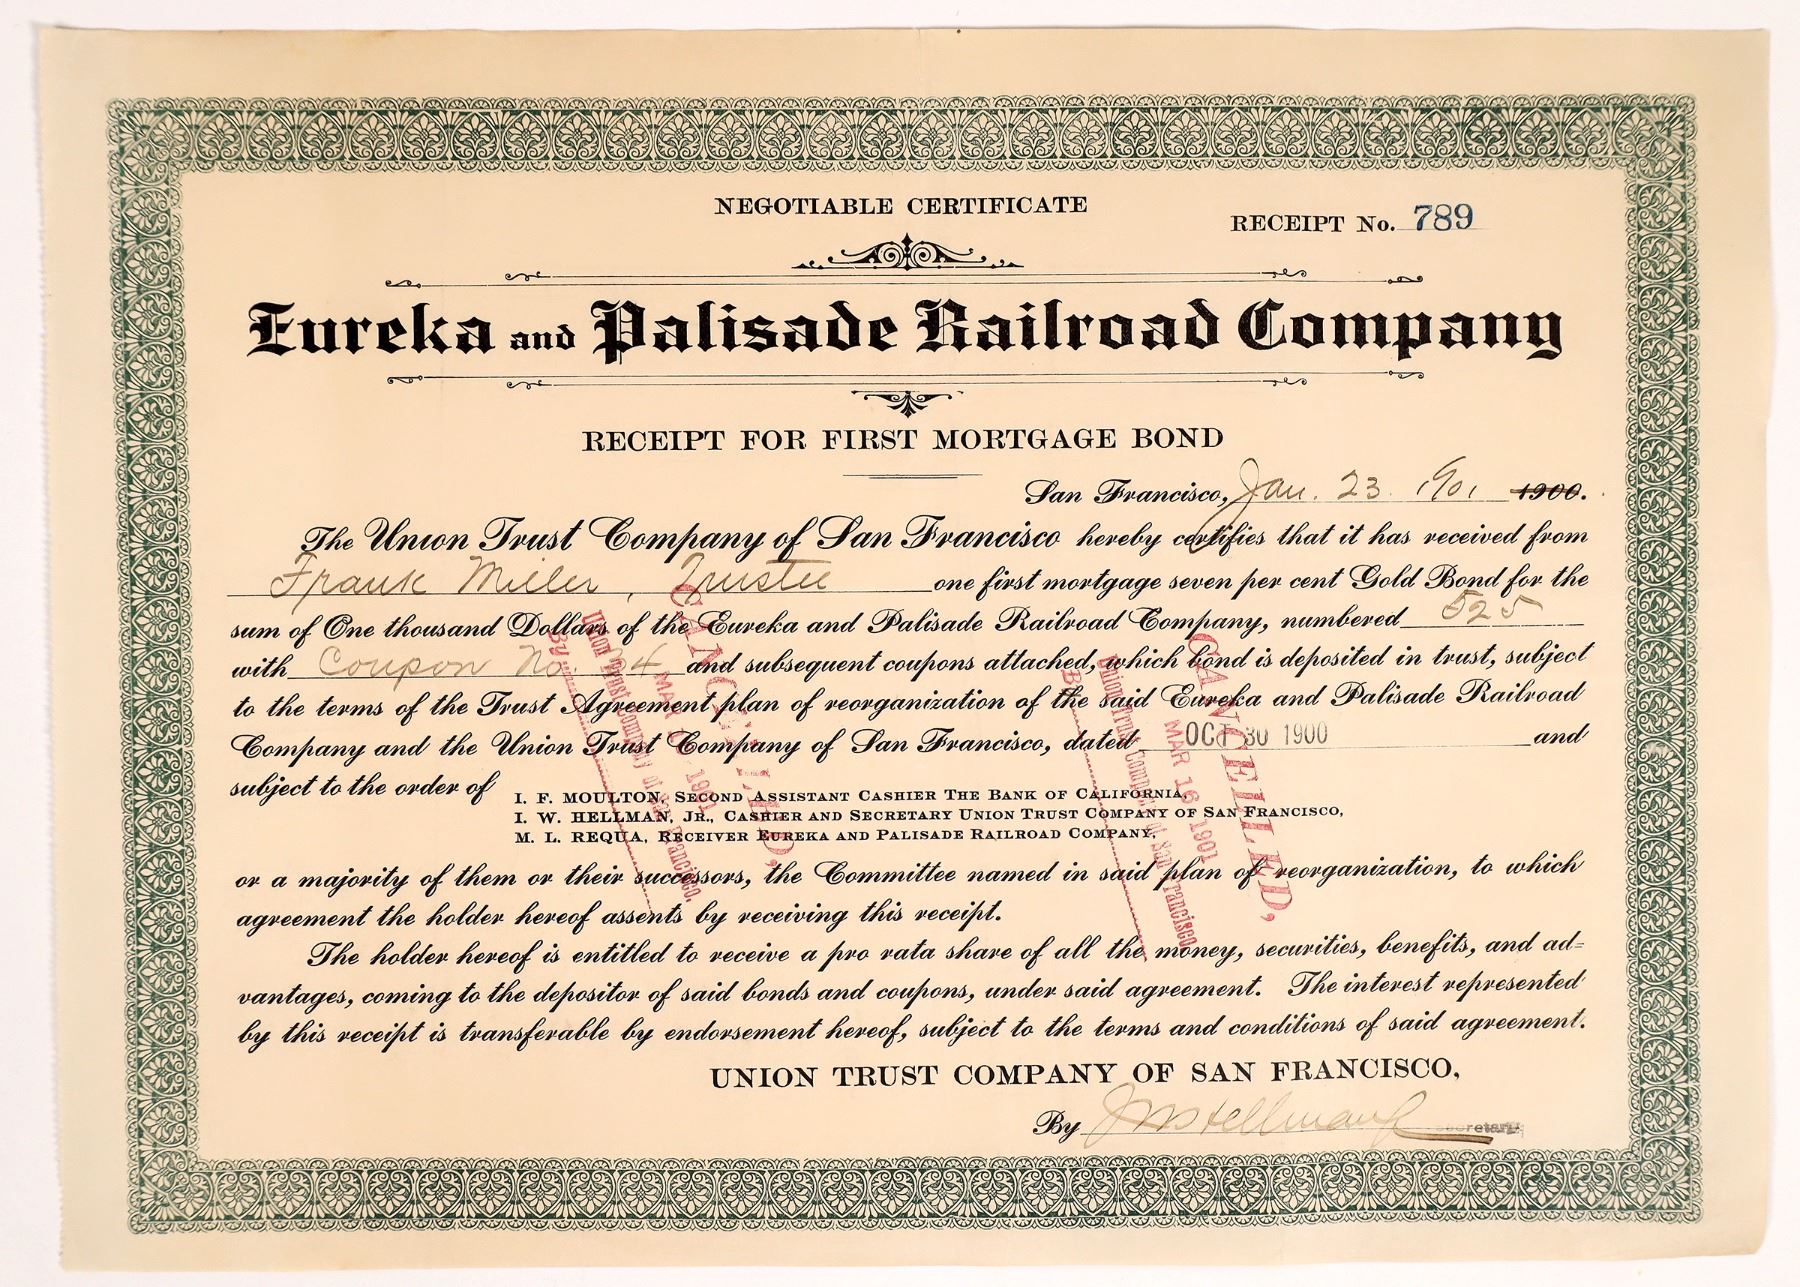 NEGOTIABLE CERTIFICATE
RECEIPT No. 789
Eureka and Palisade Railroad Company
RECEIPT FOR FIRST MORTGAGE BOND
San Francisco, Jan. 23. 1901 1900.
The Union Trust Company of San Francisco hereby certifies that it has received from
Frank Miller, Trustee one first mortgage seven per cent Gold Bond for the
sum of One thousand Dollars of the Eureka and Palisade Railroad Company, numbered 525
with Coupon No. 24 and subsequent coupons attached, which bond is deposited in trust, subject
to the terms of the Trust Agreement plan of reorganization of the said Eureka and Palisade Railroad
Company and the Union Trust Company of San Francisco, dated OCT 30 1900 and
subject to the order of
I. F. MOULTON, SECOND ASSISTANT CASHIER THE BANK OF CALIFORNIA,
I. W. HELLMAN, JR., CASHIER AND SECRETARY UNION TRUST COMPANY OF SAN FRANCISCO,
M. L. REQUA, RECEIVER EUREKA AND PALISADE RAILROAD COMPANY,
or a majority of them or their successors, the Committee named in said plan of reorganization, to which
agreement the holder hereof assents by receiving this receipt.
The holder hereof is entitled to receive a pro rata share of all the money, securities, benefits, and ad=
vantages, coming to the depositor of said bonds and coupons, under said agreement. The interest represented
by this receipt is transferable by endorsement hereof, subject to the terms and conditions of said agreement.
UNION TRUST COMPANY OF SAN FRANCISCO,
By I W Hellman Jr Secretary
CANCELLED,
MAR 1901
Union Trust Company of San Francisco.
By
CANCELLED,
MAR 16 1901
Union Trust Company of San Francisco
By